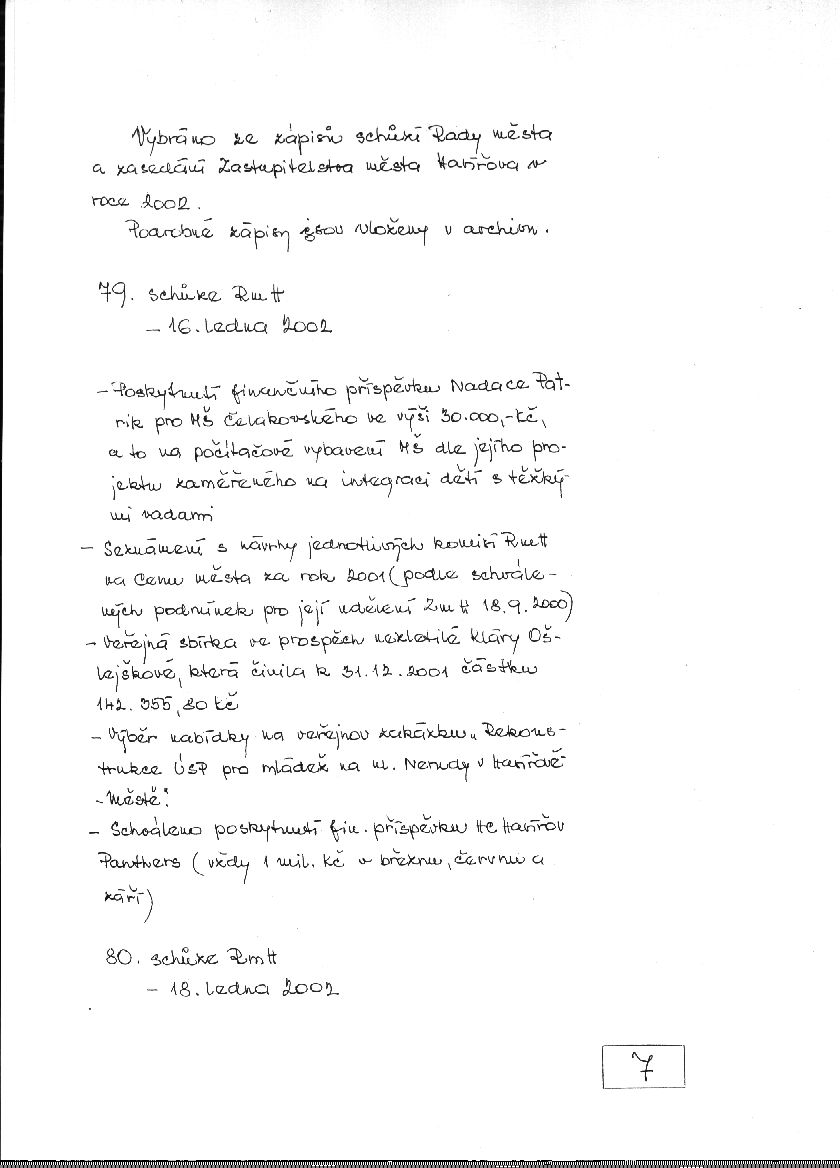 Vybráno ze zápisů schůzí Rady města
a zasedání Zastupitelstva města Havířova v
roce 2002.
Podrobné zápisy jsou vloženy v archivu.
79. schůze RmH
– 16. ledna 2002
– Poskytnutí finančního příspěvku Nadace Pat-
rik pro MŠ Čelakovského ve výši 30.000,-Kč,
a to na počítačové vybavení MŠ dle jejího pro-
jektu zaměřeného na integraci dětí s těžký-
mi vadami
– Seznámení s návrhy jednotlivých komisí RmH
na Cenu města za rok 2001 (podle schvále-
ných podmínek pro její udělení ZmH 18.9.2000)
– Veřejná sbírka ve prospěch nezletilé Kláry Oš-
lejškové, která činila k 31.12.2001 částku
142.355,80 Kč
– Výběr nabídky na veřejnou zakázku „Rekons-
trukce ÚSP pro mládež na ul. Nerudy v Havířově
-Městě"
– Schváleno poskytnutí fin. příspěvku HC Havířov
Panthers (vždy 1 mil. Kč v březnu, červnu a
září)
80. schůze RmH
– 18. ledna 2002
7